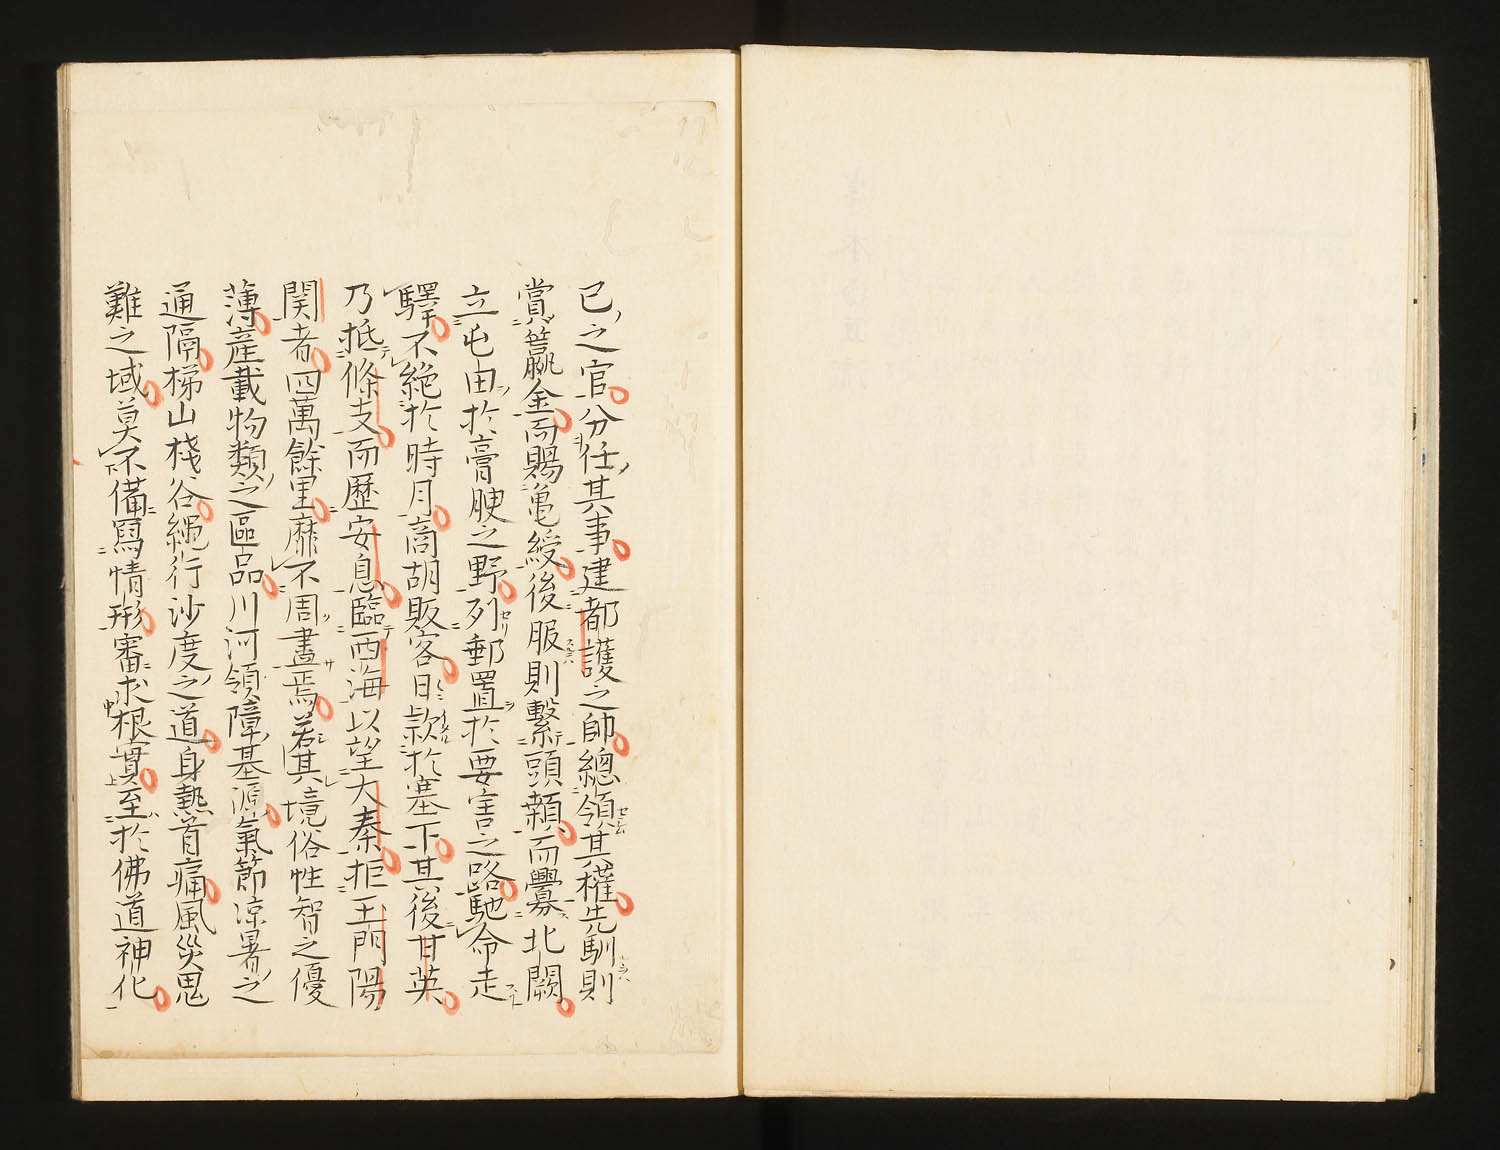 已之官分任其事建都護之帥總領其權先馴則
賞籯金而賜亀綬後服則繫頭顙而釁北闕
立屯田於膏腴之野列郵置於要害之路馳命走
驛不絶於時月商胡販客日款於塞下其後甘英
乃抵條支而歷安息臨西海以望大秦拒玉門陽
関者四萬餘里靡不周盡焉若其境俗性智之優
薄産載物類之區品川河領障基源氣節凉暑之
通隔梯山棧谷縄行沙度之道身熱首痛風災鬼
難之域莫不備冩情形審求根實至於佛道神化